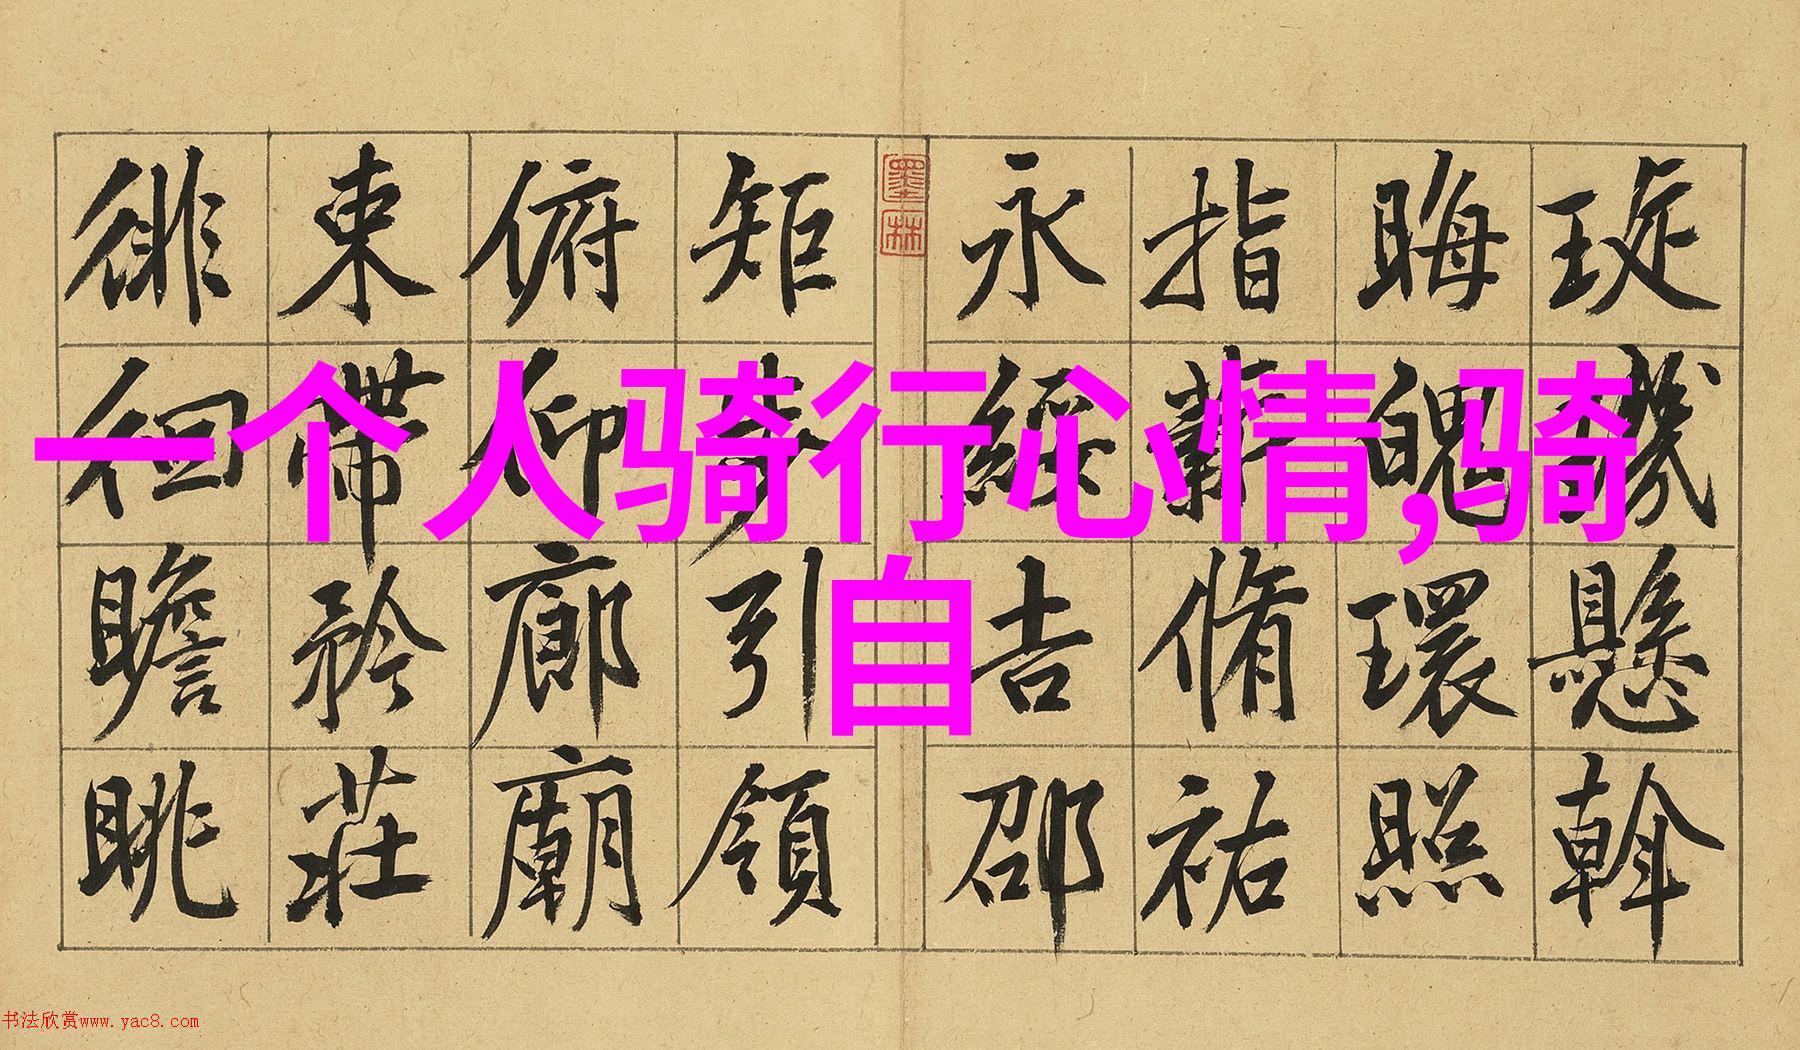 一个人骑行心情,骑
自
琁璣懸斡
晦魄環照
指薪脩祐
永綏吉邵
墨林
矩步引領
俯仰廊廟
束帶矜莊
徘徊瞻眺
书法欣赏www.yac8.com